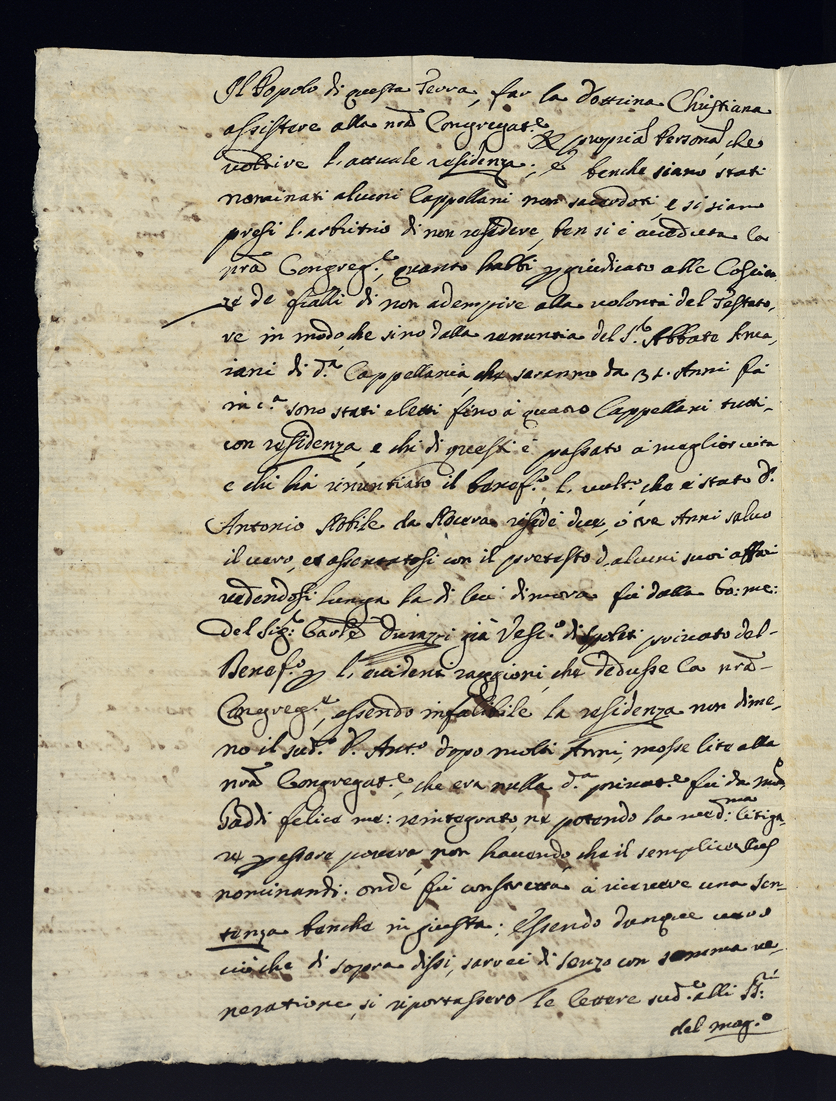 Il Popolo di questa Terra, far la dottrina Christiana
assistere alla nrã Congregat.e propria Persona, che
l'attuale residenza; e benche siano stati
nominati alcuni Cappellani non sacerdoti, e si sian
presi l'arbitrio di non risedere, ben si è avveduta la
nrã Congreg.e, quanto habbi pgiudicato alle Coscien
ze de fratelli di non adempire alla volontà del Testato,
re in modo, che sino dalla renuntia del S.r Abbate
iani di d.a Cappellania, che saranno da 34. Anni fà
in c.a sono stati eletti fino à quatro Cappellani tutti
con residenza, e chi di questi è passato à miglior vita
e chi hà renuntiato il benef.o, l'ult.o, che è stato D.
Antonio Nobile da Nocera risedè due, ò tre Anni salvo
il vero, et assentatosi con il pretesto d'alcuni suoi affari
vedendosi lunga la di lui dimora fù dalla bo: me:
del Sig.r Card.le Durazzi già Vesc.o di Spoleti privato del
Benef.o p l'evidenti raggioni, che dedusse la nrã
Congreg.e, essendo infalibile la residenza non dime,
no il sud.o D. Ant.o dopo molti Anni, mosse lite alla
nrã Congregat.e, che era nulla d.a privat.e fù da Mons.
Gaddi felice me: reintegrato, ne potendo la med.ma litiga,
re p essere povera, non havendo che il semplice Jus
nominandi. onde fù constretta à ricevere una sen
tenza benche ingiusta; Essendo dunque vero
ciò che di sopra dissi, sarei di senzo con somma ve,
neratione, si riportassero le lettere sud.e alli SS.ri
del mag.o